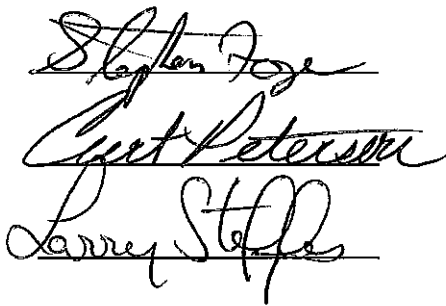 Stephen Foge
Curt Peterson
Larry Steffes